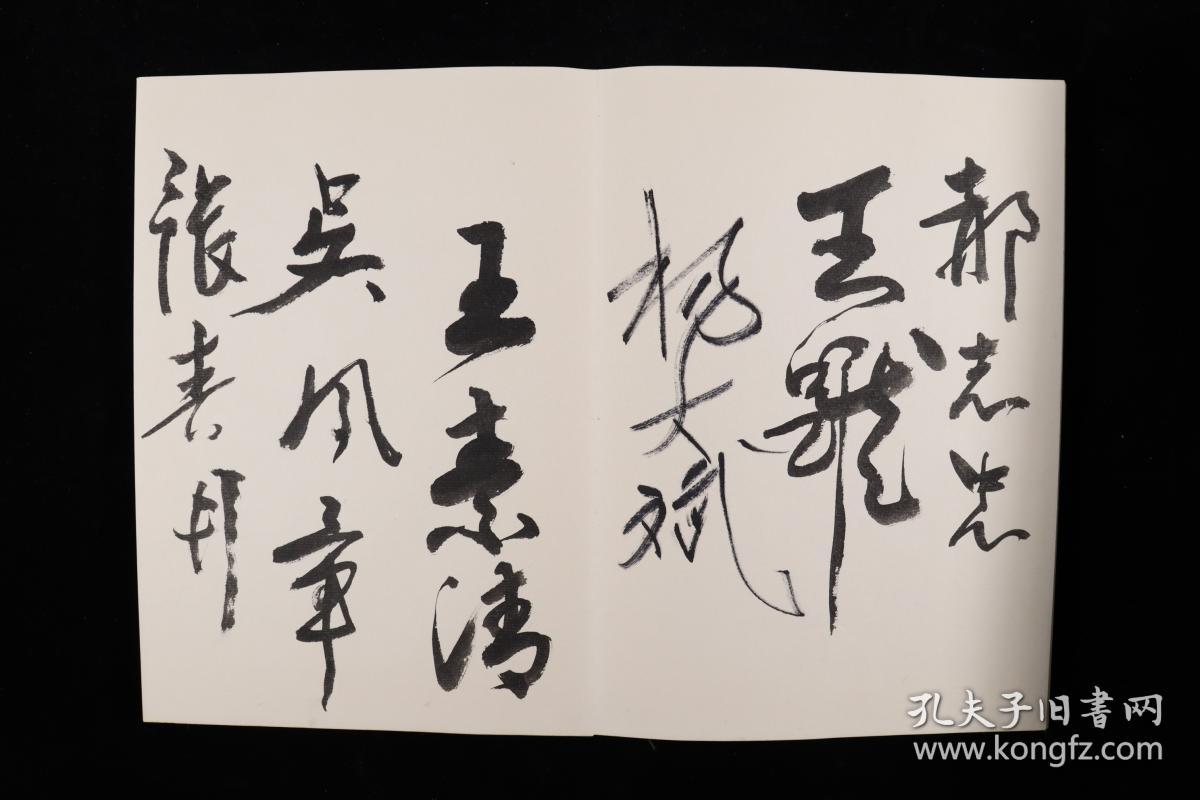 郝志忠
王
杨大斌
王素清
吴凤章
張春
孔夫子旧書网
www.kongfz.com